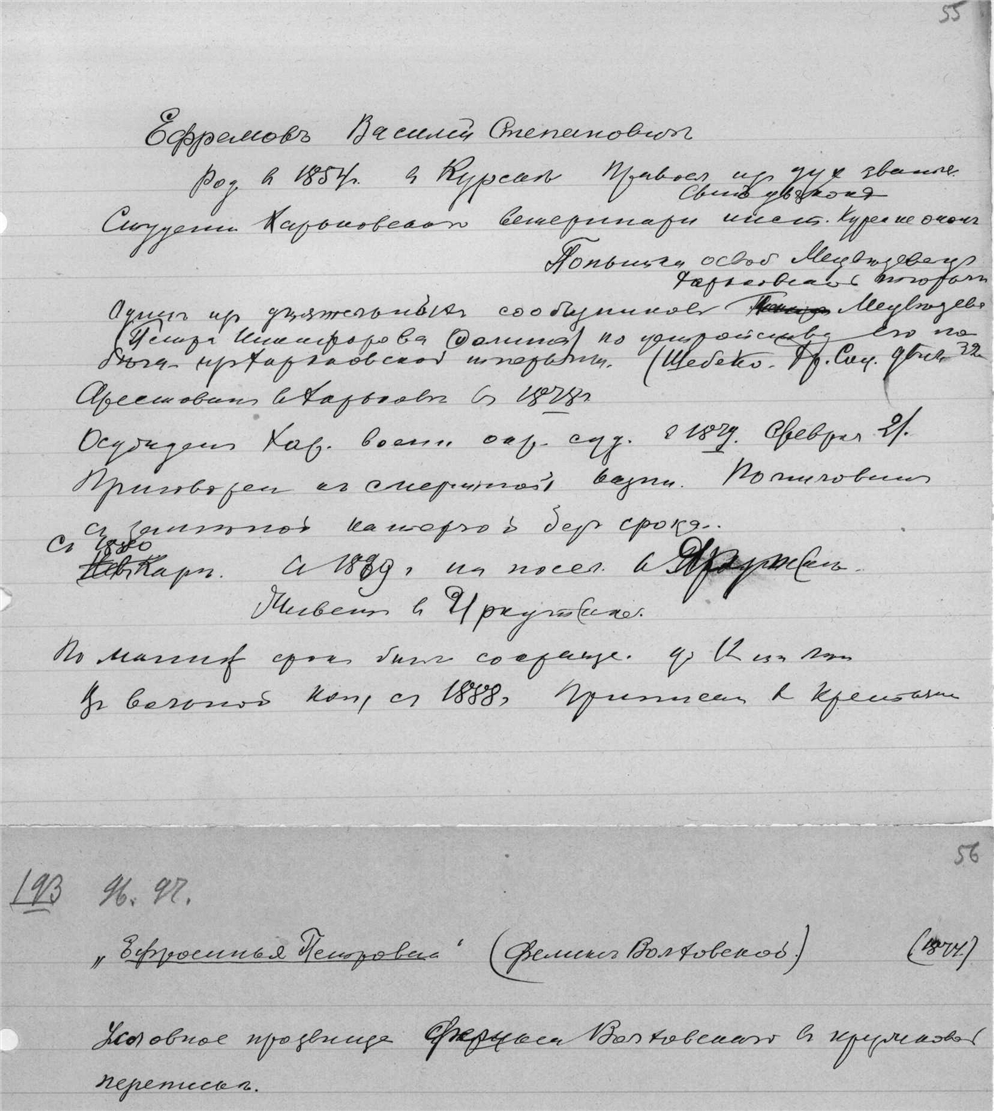 55
Ефремовъ Василій Степановичъ
Род. в 1854 г. в Курскѣ Правосл. из дух. званія.
Сынъ дьякона
Студентъ Харьковскаго ветеринарн. инст. Курса не оконч
Попытка освоб. Медвѣдева из
Харьковской тюрьмы
Один из дѣятельных сообщниковъ Медвѣдева
(Петра Никифорова Фомина) по устройству его по
бѣга из Харьковской тюрьмы. (Шебеко. Хр. Соц. движ. 32
Арестованъ в Харьковѣ в 1878 г
Осужденъ Хар. воен. окр. суд. в 1879. Февраля 21.
Приговорен къ смертной казни. Помилованъ
съ замѣной каторгой без срока.
Съ 1880
на Карѣ. В 1889 г на посел. в
Живетъ в Иркутскѣ.
По маниф срок был сокраще. до 12 лѣт
В вольной ком, съ 1888 г Приписан к крестьянам
56
193 96. 97.
„Ефросинья Петровна" (Феликс Волховской.) (1874)
Условное прозвище Феликса Волховскаго в кружковой
перепискѣ.